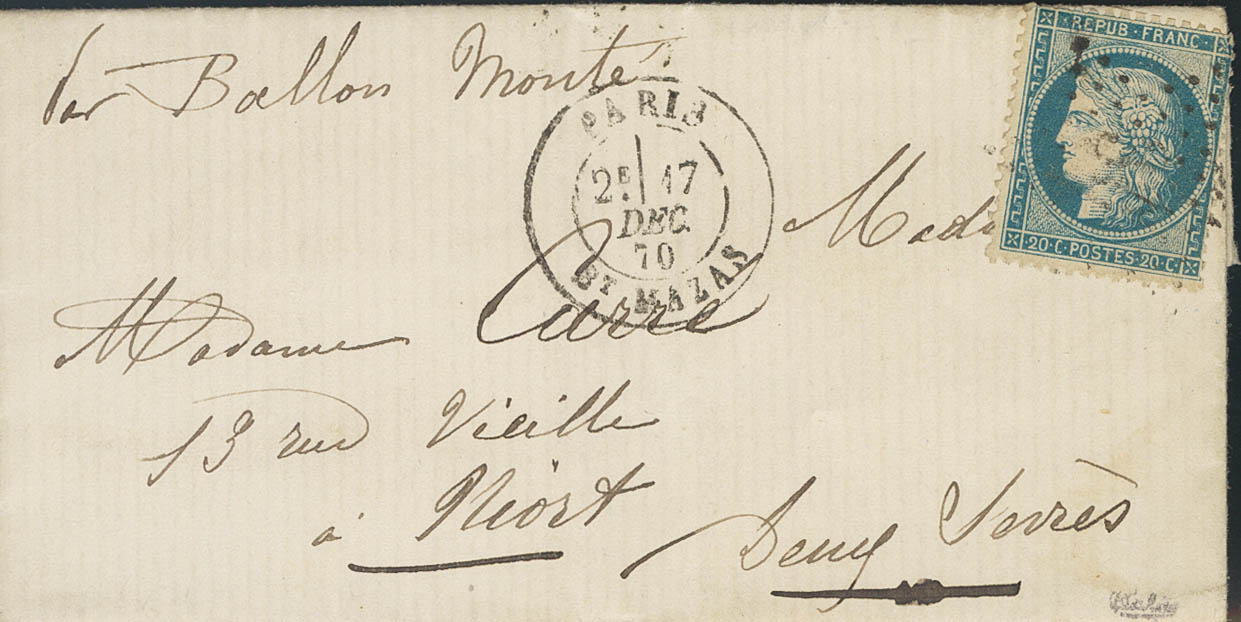 par Ballon Monté
REPUB·FRANC·
20·C·POSTES·20·C·
PARIS
2E 17
DEC.
70
BT MAZAS
Mada
Madame Carré
13 rue Vieille
à Niort Deux Sèvres